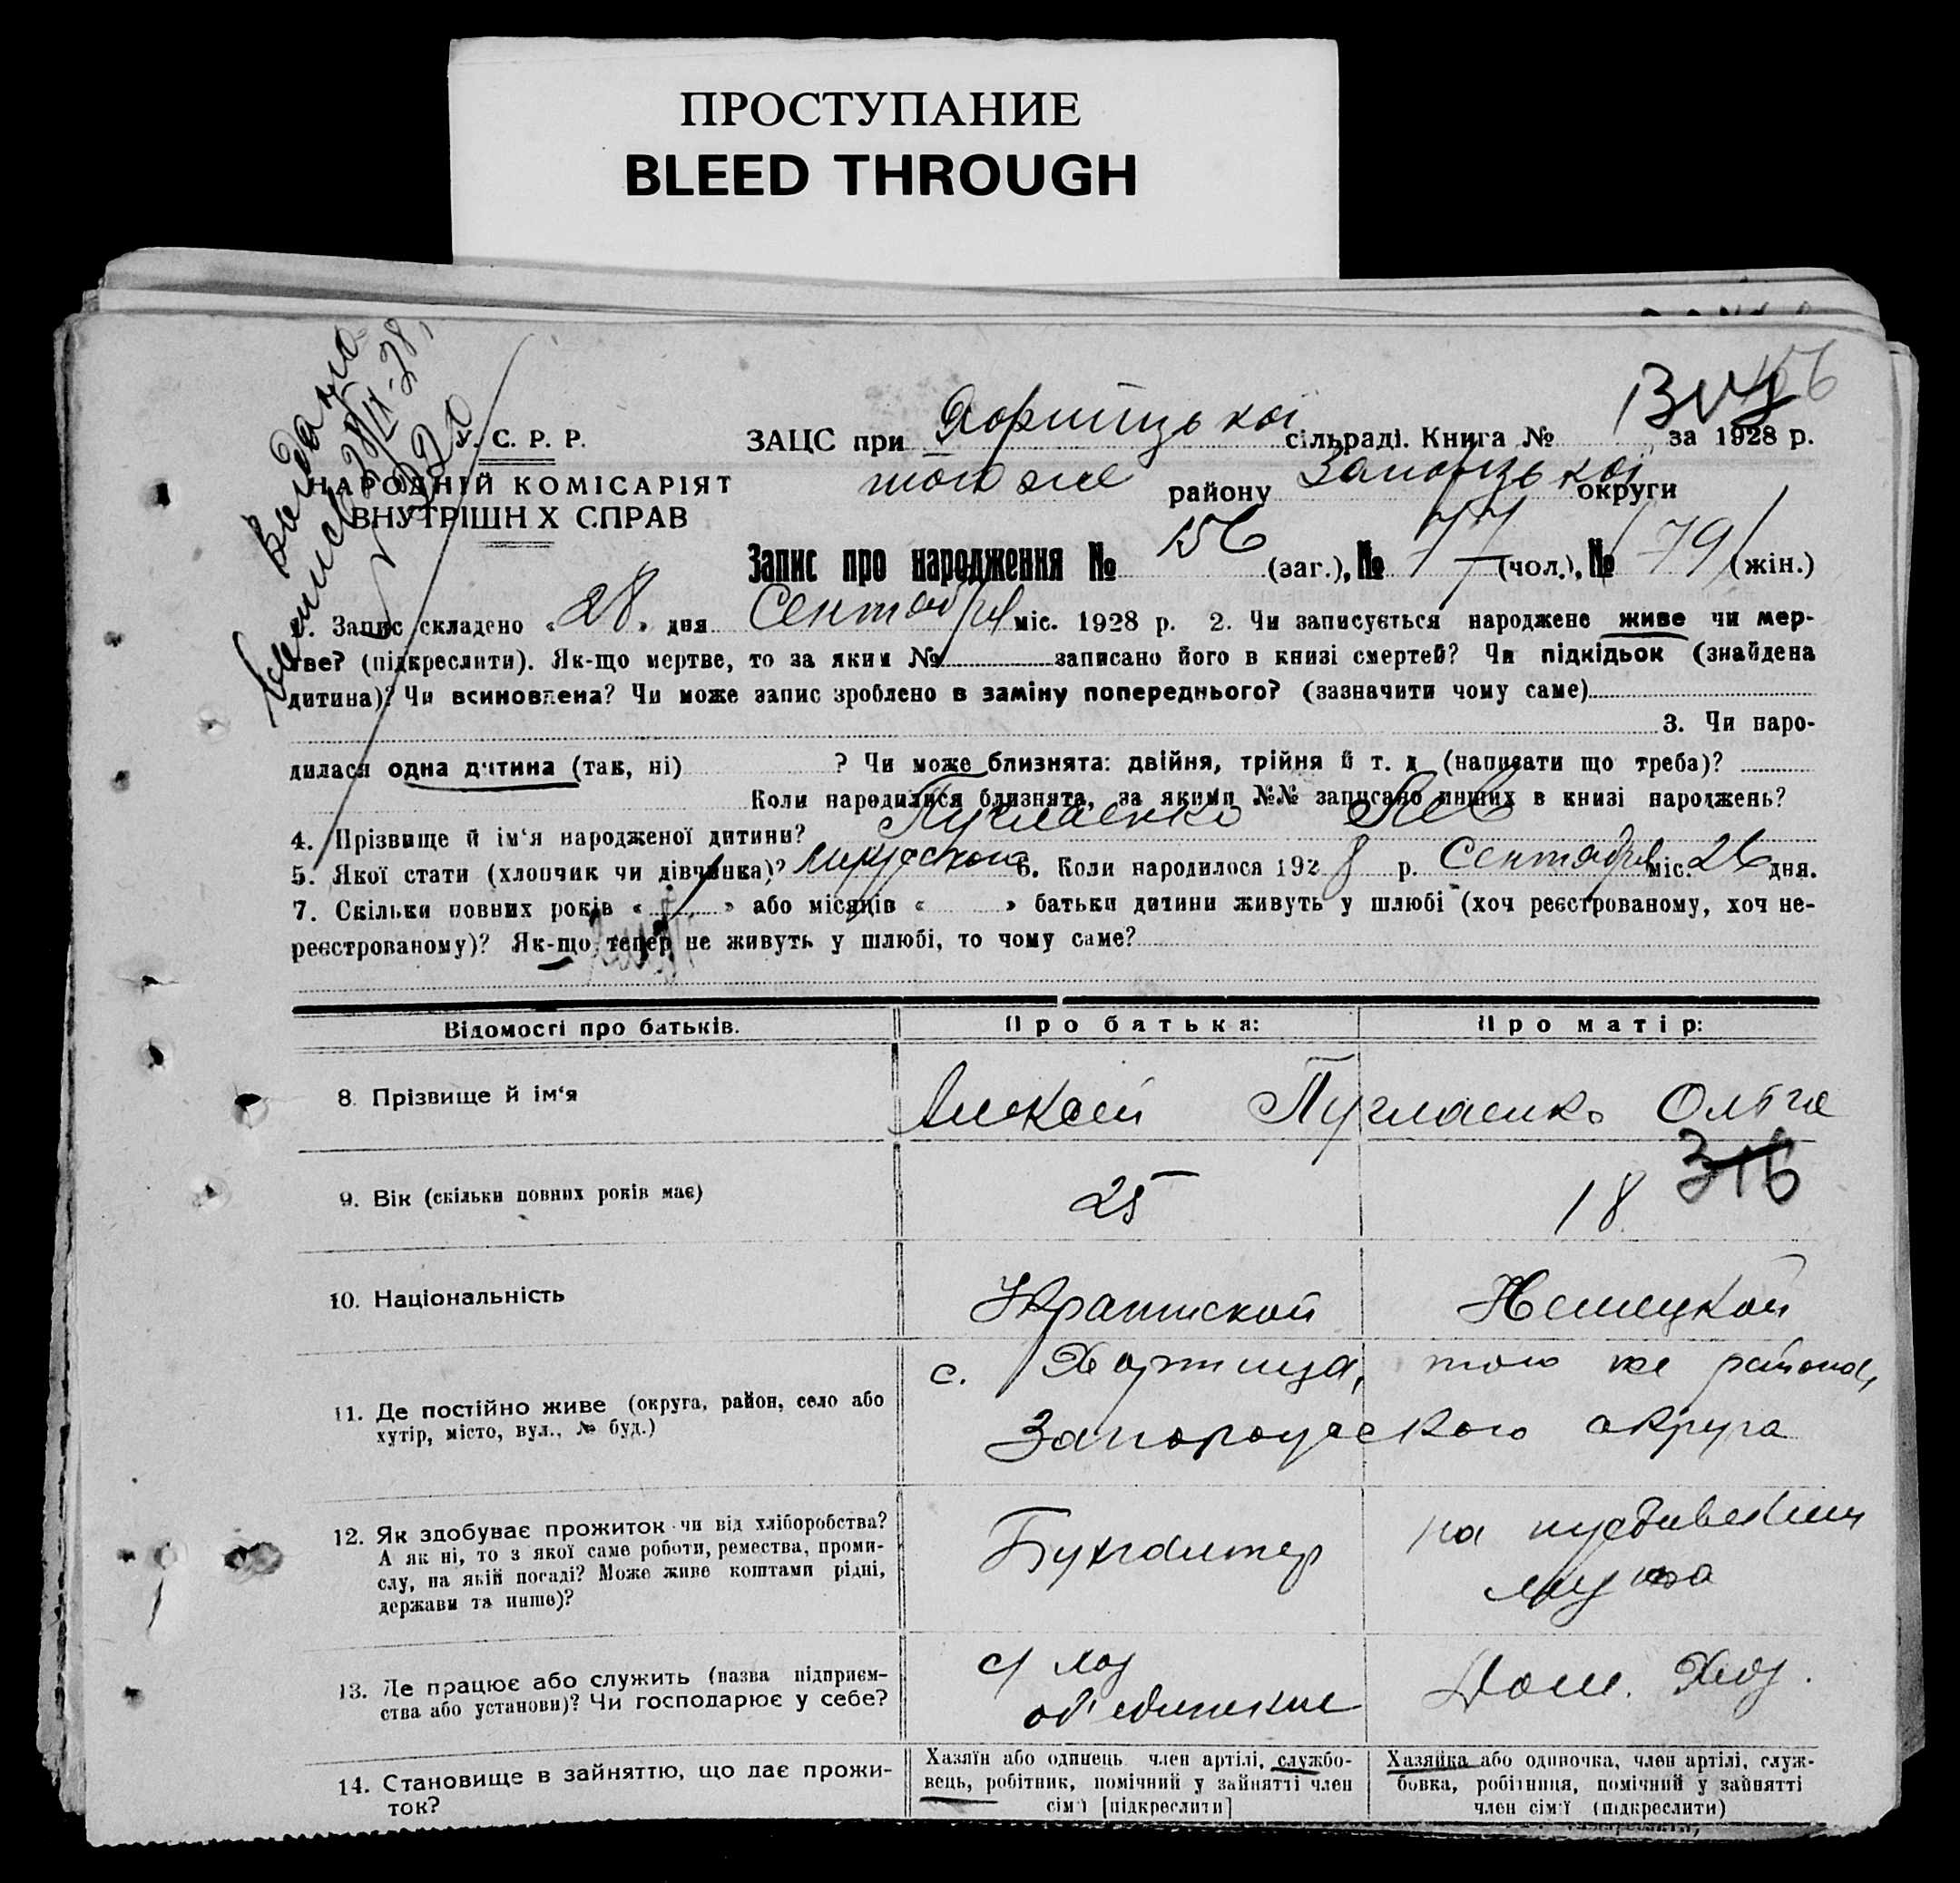 ПРОСТУПАНИЕ
BLEED THROUGH
156
Выдано
28/IX-28,
У. С. Р. Р.
НАРОДНІЙ КОМІСАРІЯТ
ВНУТРІШН Х СПРАВ
ЗАЦС при Хортицькой сільраді. Книга № за 1928 р.
того же району округи
Запис про народження № 156 (заг.), № 77 (чол.), № 79 (жін.)
1. Запис складено «28» дня Сентября міс. 1928 р. 2. Чи записується народжене живе чи мер-
тве? (підкреслити). Як-що мертве, то за яким № записано його в книзі смертей? Чи підкідьок (знайдена
дитина)? Чи всиновлена? Чи може запис зроблено в заміну попереднього? (зазначити чому саме)
3. Чи наро-
дилася одна дитина (так, ні) ? Чи може близнята: двійня, трійня й т. д (написати що треба)?
Коли народилися близнята, за якими №№ записано инших в книзі народжень?
4. Прізвище й ім'я народженої дитини? Пугласенко Лев
5. Якої стати (хлопчик чи дівчинка)? Мужской 6. Коли народилося 1928 р. Сентября міс. 26 дня.
7. Скільки повних років «1» або місяців « » батьки дитини живуть у шлюбі (хоч реєстрованому, хоч не-
реєстрованому)? Як-що тепер не живуть у шлюбі, то чому саме?
Відомості про батьків. Про батька: Про матір:
8. Прізвище й ім'я Алексей Пугласенко Ольга
316
9. Вік (скільки повних років має) 25 18
10. Національність Украинской Немецкой
11. Де постійно живе (округа, район, село або
хутір, місто, вул., № буд.)
с. Хортица, того же района,
Запорожского округа
12. Як здобуває прожиток чи від хліборобства?
А як ні, то з якої саме роботи, ремества, проми-
слу, на якій посаді? Може живе коштами рідні,
держави та инше)?
Бухгалтер
на иждивении
мужа
13. Де працює або служить (назва підприєм-
ства або установи)? Чи господарює у себе?
с/хоз
объединение
Дом. Хоз.
14. Становище в зайняттю, що дає прожи-
ток?
Хазяїн або одинець член артілі, службо-
вець, робітник, помічний у зайнятті член
сім'ї [підкреслити]
Хазяйка або одиночка, член артілі, служ-
бовка, робітниця, помічний у зайнятті
член сім'ї (підкреслити)